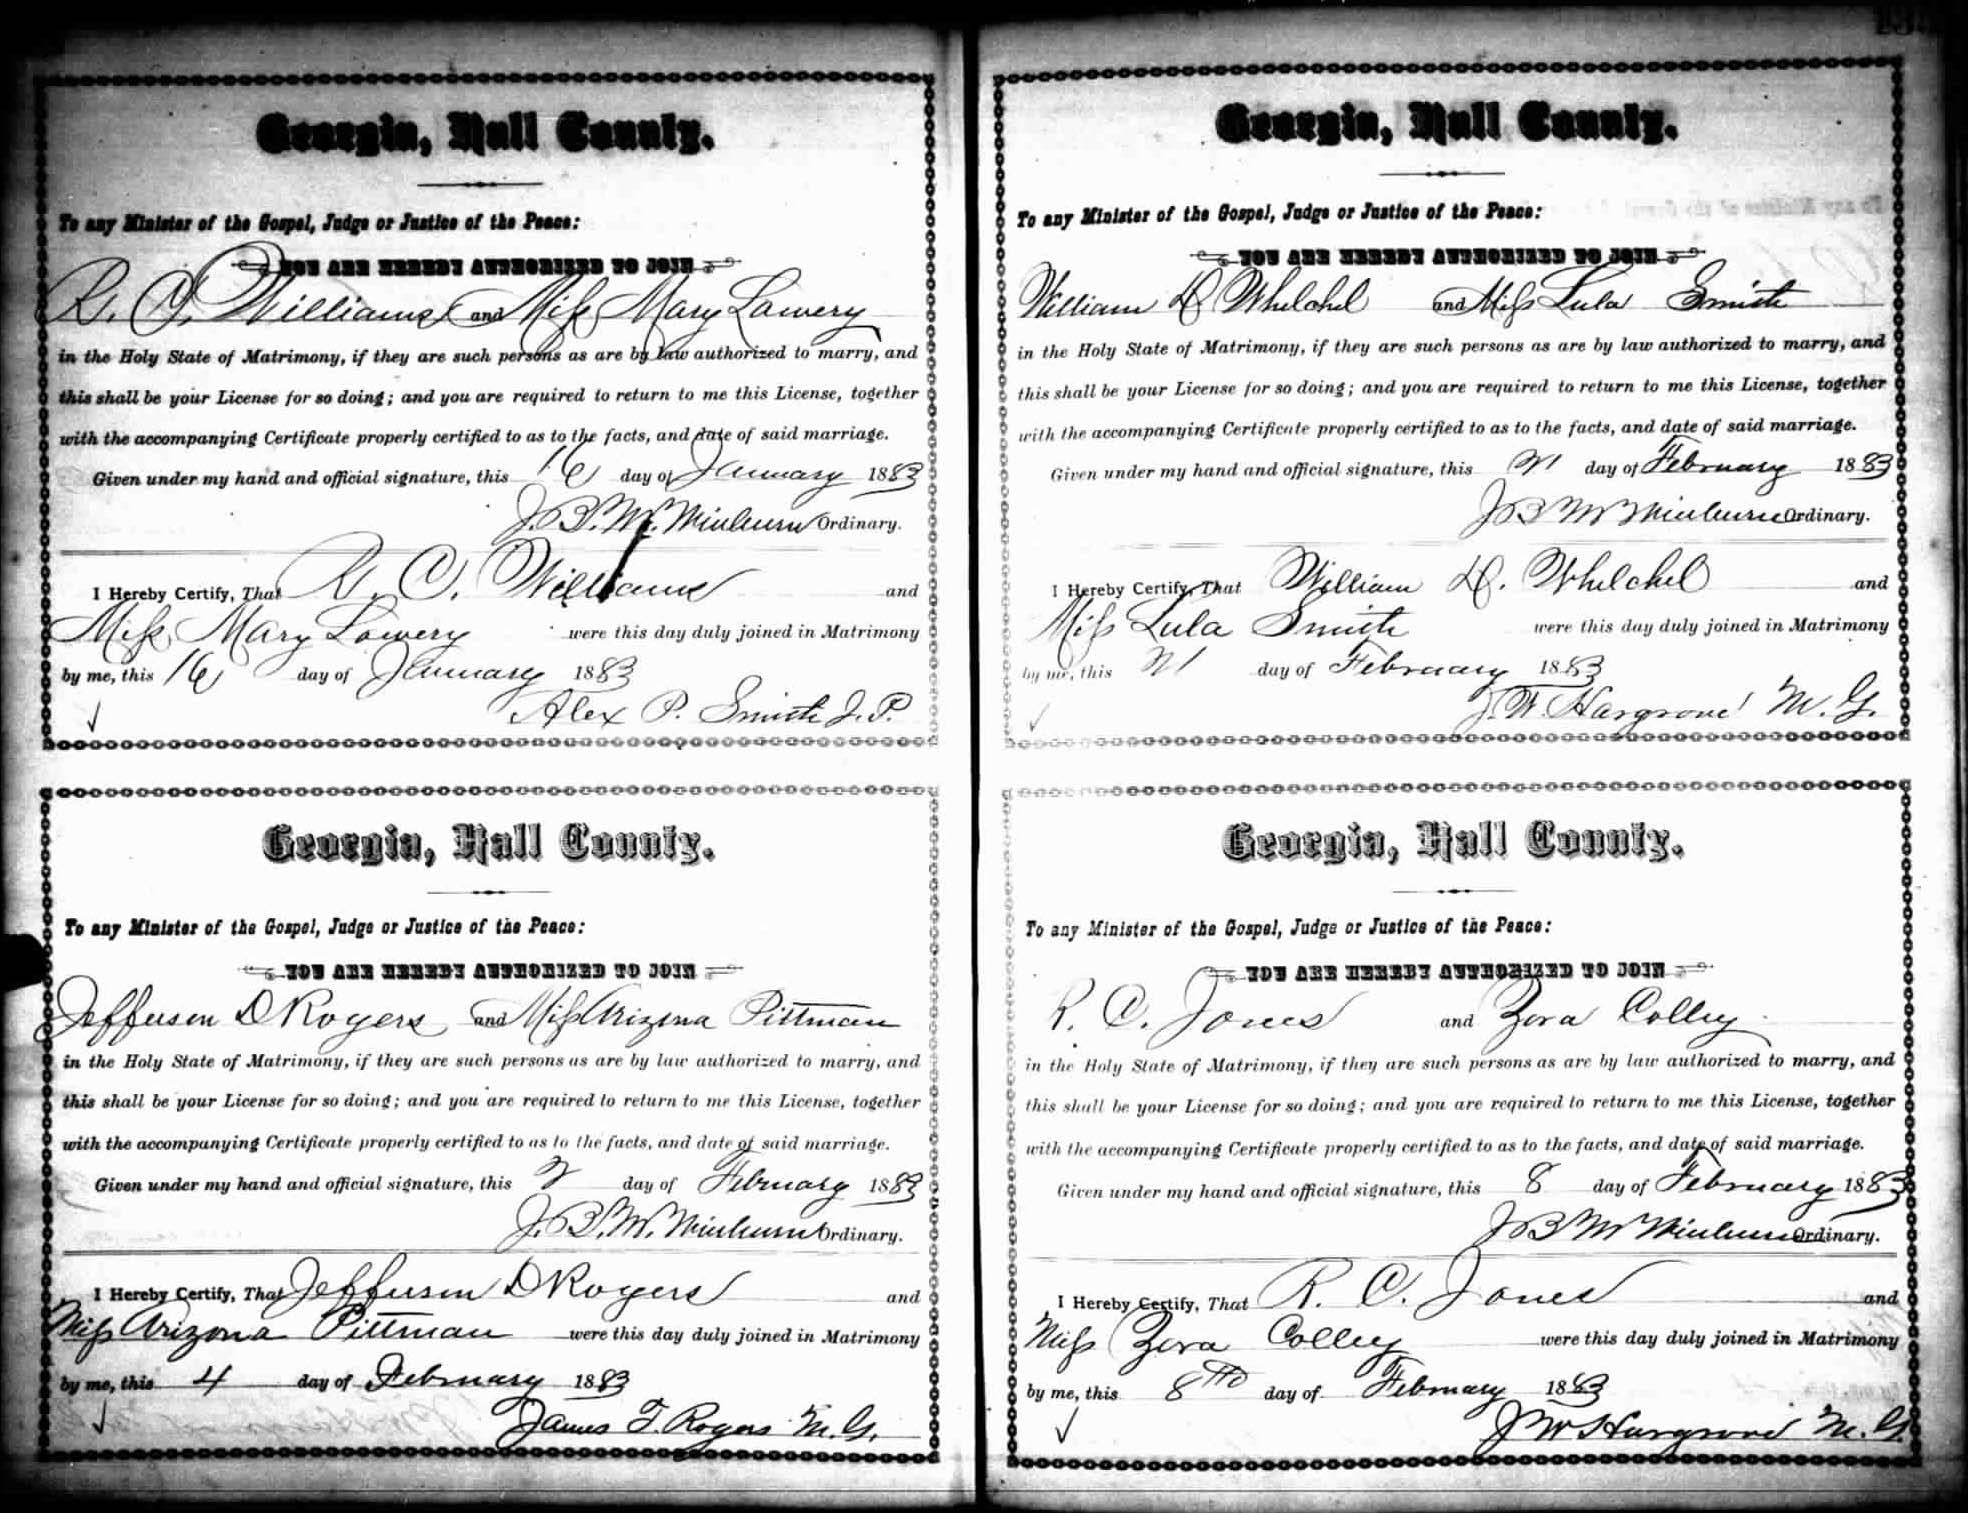 Georgia, Hall County.
To any Minister of the Gospel, Judge or Justice of the Peace:
YOU ARE HEREBY AUTHORIZED TO JOIN
R. C. Williams and Miss Mary Lowery
in the Holy State of Matrimony, if they are such persons as are by law authorized to marry, and
this shall be your License for so doing; and you are required to return to me this License, together
with the accompanying Certificate properly certified to as to the facts, and date of said marriage.
Given under my hand and official signature, this 16 day of January 1883
J. B. M. Winburn Ordinary.
I Hereby Certify, That R. C. Williams and
Miss Mary Lowery were this day duly joined in Matrimony
by me, this 16 day of January 1883
Alex P. Smith J. P.
Georgia, Hall County.
To any Minister of the Gospel, Judge or Justice of the Peace:
YOU ARE HEREBY AUTHORIZED TO JOIN
Jefferson D Rogers and Miss Arizona Pittman
in the Holy State of Matrimony, if they are such persons as are by law authorized to marry, and
this shall be your License for so doing; and you are required to return to me this License, together
with the accompanying Certificate properly certified to as to the facts, and date of said marriage.
Given under my hand and official signature, this 2 day of February 1883
J. B. M. Winburn Ordinary.
I Hereby Certify, That Jefferson D Rogers and
Miss Arizona Pittman were this day duly joined in Matrimony
by me, this 4 day of February 1883
James T. Rogers M. G.
Georgia, Hall County.
To any Minister of the Gospel, Judge or Justice of the Peace:
YOU ARE HEREBY AUTHORIZED TO JOIN
William D Whelchel and Miss Lula Smith
in the Holy State of Matrimony, if they are such persons as are by law authorized to marry, and
this shall be your License for so doing; and you are required to return to me this License, together
with the accompanying Certificate properly certified to as to the facts, and date of said marriage.
Given under my hand and official signature, this 21 day of February 1883
J B M Winburn Ordinary.
I Hereby Certify, That William D. Whelchel and
Miss Lula Smith were this day duly joined in Matrimony
by me, this 21 day of February 1883
J. W. Hargrove M. G.
Georgia, Hall County.
To any Minister of the Gospel, Judge or Justice of the Peace:
YOU ARE HEREBY AUTHORIZED TO JOIN
R. C. Jones and Zora Colley
in the Holy State of Matrimony, if they are such persons as are by law authorized to marry, and
this shall be your License for so doing; and you are required to return to me this License, together
with the accompanying Certificate properly certified to as to the facts, and date of said marriage.
Given under my hand and official signature, this 8 day of February 1883
J B M Winburn Ordinary.
I Hereby Certify, That R. C. Jones and
Miss Zora Colley were this day duly joined in Matrimony
by me, this 8th day of February 1883
J W Hargrove M. G.